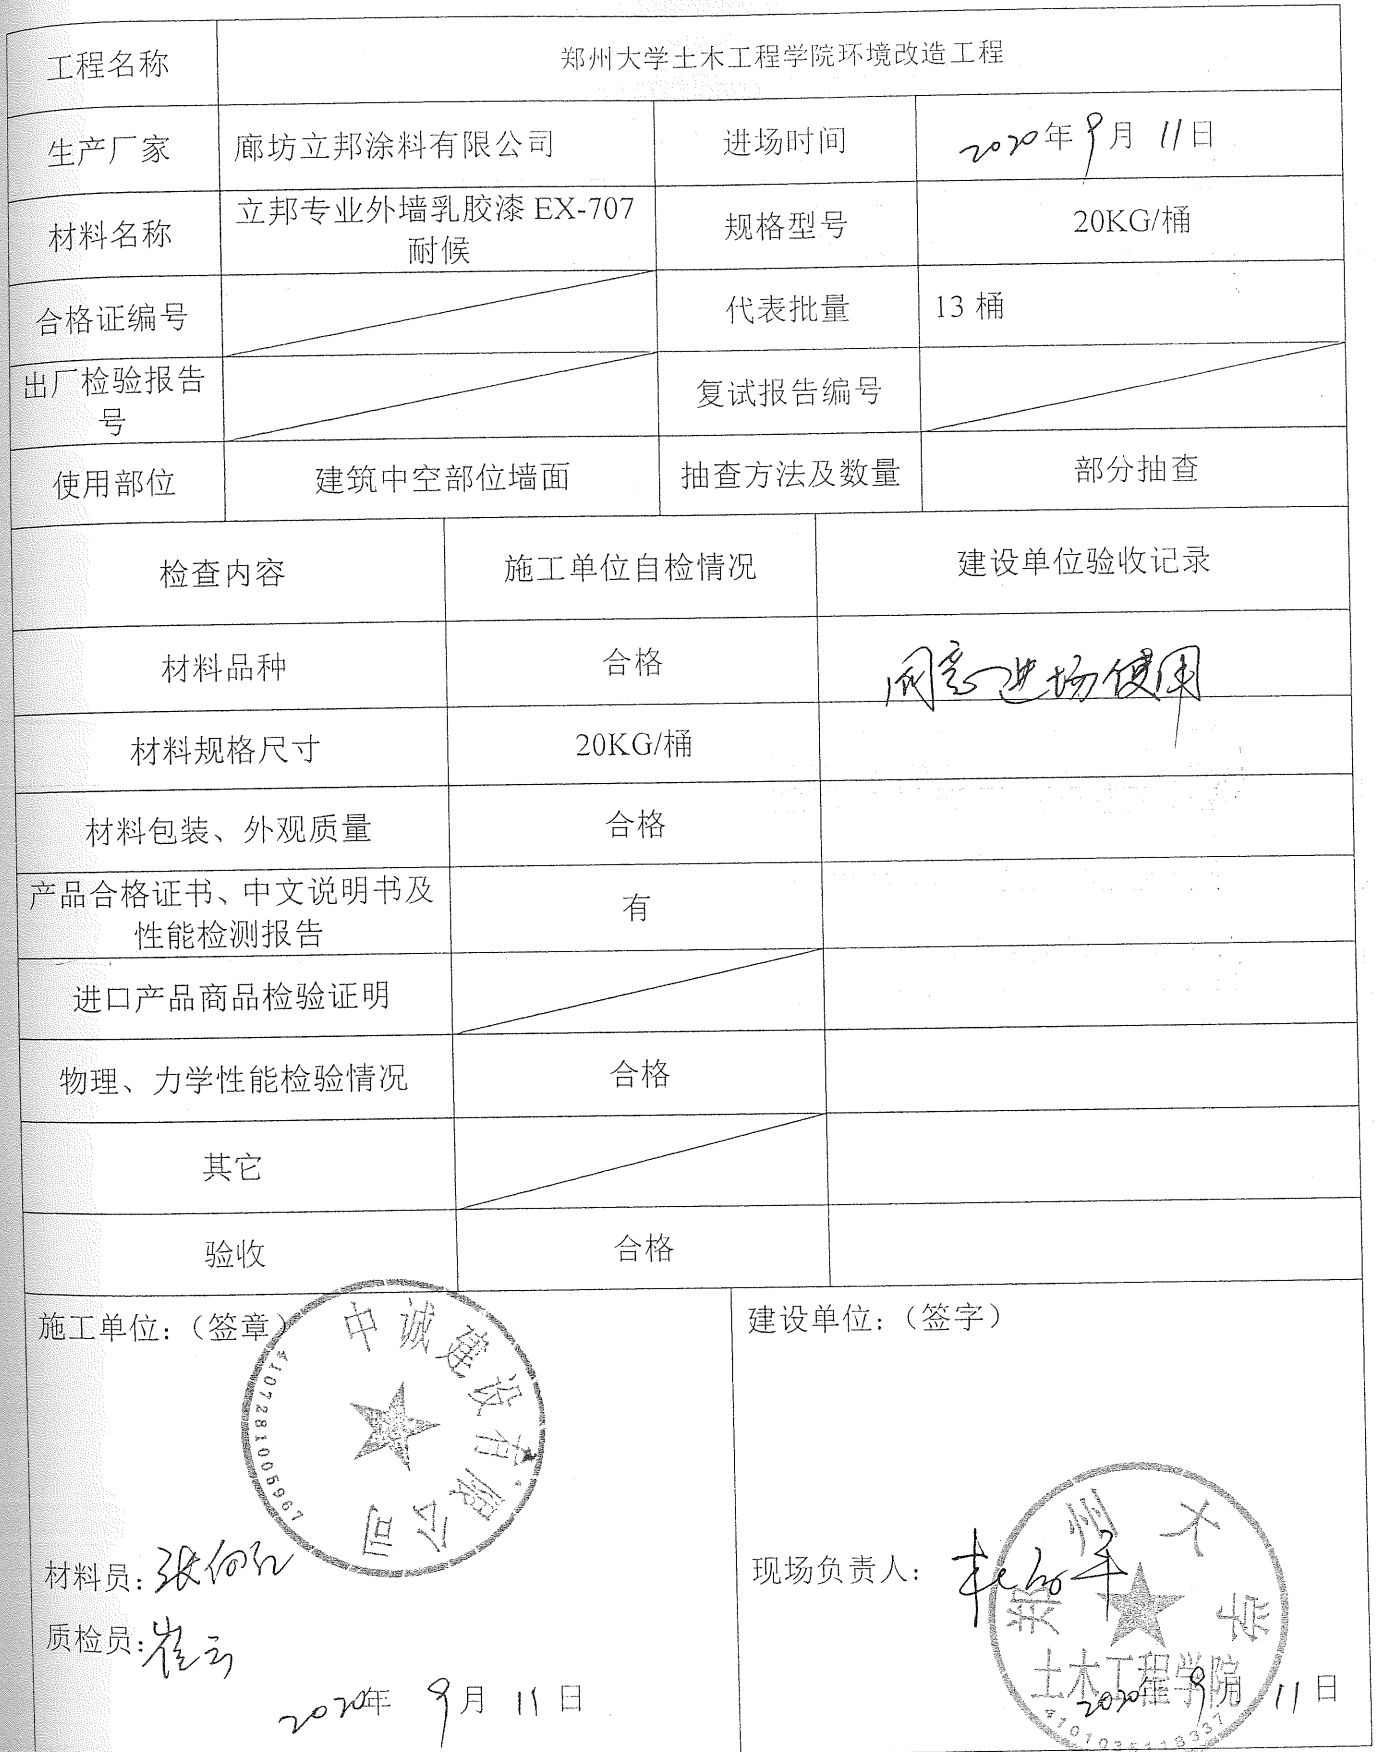 工程名称 郑州大学土木工程学院环境改造工程
生产厂家 廊坊立邦涂料有限公司 进场时间 2020年9月11日
材料名称 立邦专业外墙乳胶漆 EX-707 规格型号 20KG/桶
耐候
合格证编号 代表批量 13 桶
出厂检验报告
号 复试报告编号
使用部位 建筑中空部位墙面 抽查方法及数量 部分抽查
检查内容 施工单位自检情况 建设单位验收记录
材料品种 合格 同意进场使用
材料规格尺寸 20KG/桶
材料包装、外观质量 合格
产品合格证书、中文说明书及
性能检测报告 有
进口产品商品检验证明
物理、力学性能检验情况 合格
其它
验收 合格
施工单位：（签章）
中诚建设有限公司
4107281005967
材料员：
质检员：崔云
2020年 9月 11日
建设单位：（签字）
现场负责人：
郑州大学
土木工程学院
2020年 9月 11日